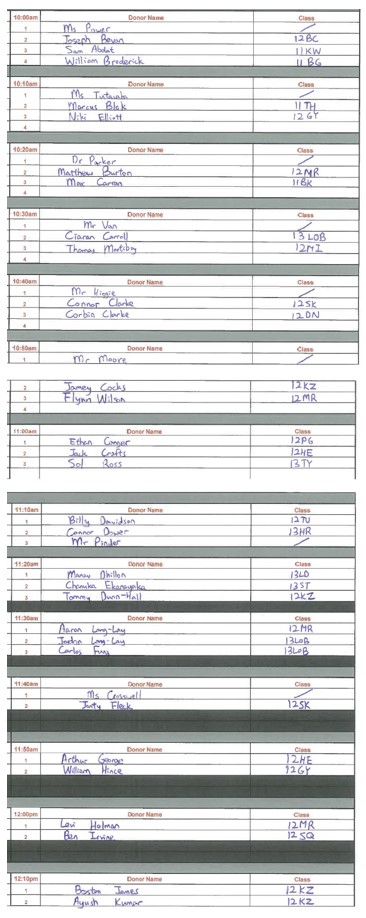 10:00am Donor Name Class
1 Ms Power /
2 Joseph Bevan 12BC
3 Sam Abdat 11KW
4 William Broderick 11BG
10:10am Donor Name Class
1 Ms /
2 Marcus Blok 11TH
3 Niki Elliott 12GY
4
10:20am Donor Name Class
1 Dr Parker /
2 Matthew Burton 12MR
3 Max Carran 11BK
4
10:30am Donor Name Class
1 Mr Van /
2 Ciaran Carroll 13LOB
3 Thomas 12MI
4
10:40am Donor Name Class
1 Mr /
2 Connor Clarke 12SK
3 Corbin Clarke 12DN
4
10:50am Donor Name Class
1 Mr Moore /
2 Jamey Cocks 12KZ
3 Flynn Wilson 12MR
4
11:00am Donor Name Class
1 Ethan Conner 12PG
2 Jack Crofts 12HE
3 Sol Ross 13TY
11:10am Donor Name Class
1 Billy Davidson 12TU
2 Connor Dower 13HR
3 Mr Pinder /
11:20am Donor Name Class
1 Manav Dhillon 13LD
2 Chanuka Ekanayaka 13ST
3 Tommy Dunn-Hall 12KZ
11:30am Donor Name Class
1 Aaron Long-Lay 12MR
2 Long-Lay 13LOB
3 Carlos 13LOB
11:40am Donor Name Class
1 Ms Cresswell /
2 Fleck 12SK
11:50am Donor Name Class
1 Arthur George 12HE
2 William Hince 12GY
12:00pm Donor Name Class
1 Levi Holman 12MR
2 Ben Irvine 12SQ
12:10pm Donor Name Class
1 Boston James 12KZ
2 Ayush Kumar 12KZ